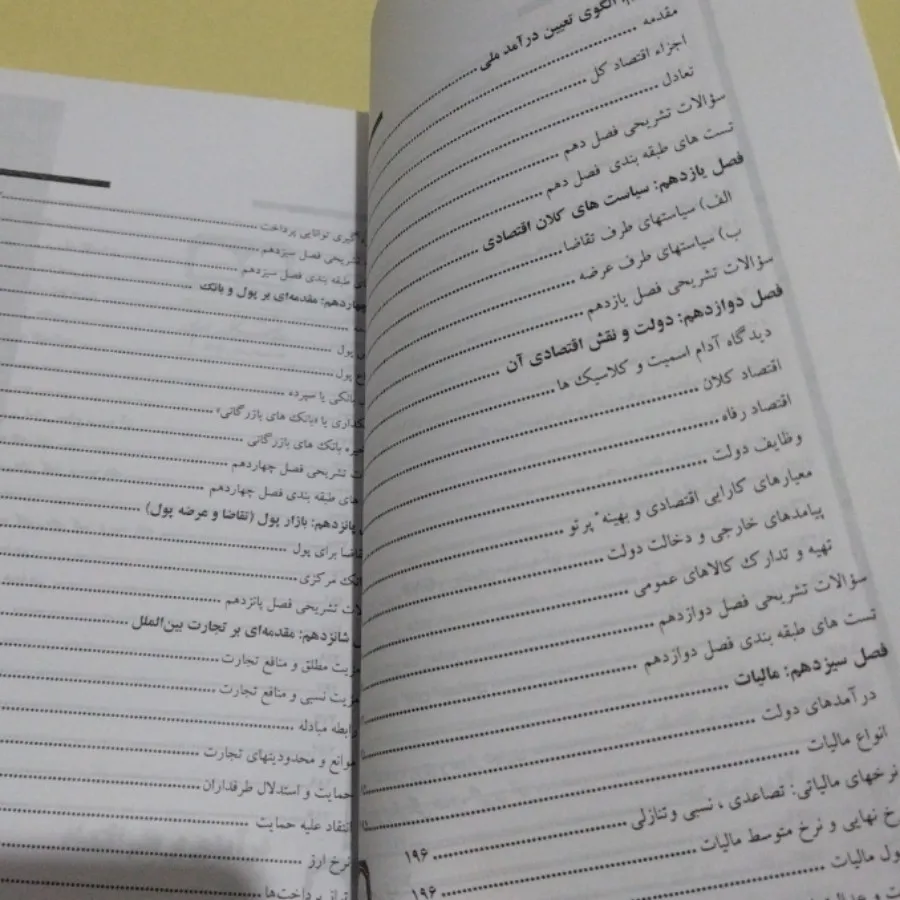 الگوی تعیین درآمد ملی
مقدمه
اجزاء اقتصاد کل
تعادل
سؤالات تشریحی فصل دهم
تست های طبقه بندی فصل دهم
فصل یازدهم: سیاست های کلان اقتصادی
الف) سیاستهای طرف تقاضا
ب) سیاستهای طرف عرضه
سؤالات تشریحی فصل یازدهم
فصل دوازدهم: دولت و نقش اقتصادی آن
دیدگاه آدام اسمیت و کلاسیک ها
اقتصاد کلان
اقتصاد رفاه
وظایف دولت
معیارهای کارایی اقتصادی و بهینه پرتو
پیامدهای خارجی و دخالت دولت
تهیه و تدارک کالاهای عمومی
سؤالات تشریحی فصل دوازدهم
تست های طبقه بندی فصل دوازدهم
فصل سیزدهم: مالیات
درآمدهای دولت
انواع مالیات
نرخهای مالیاتی: تصاعدی، نسبی وتنازلی ۱۹۶
نهایی و نرخ متوسط مالیات ۱۹۶
مالیات
گیری توانایی پرداخت
تشریحی فصل سیزدهم
طبقه بندی فصل سیزدهم
مقدمه‌ای بر پول و بانک
پول
پول
بانکی یا سپرده
یا «بانک های بازرگانی»
بانک های بازرگانی
تشریحی فصل چهاردهم
های طبقه بندی فصل چهاردهم
پانزدهم: بازار پول (تقاضا و عرضه پول)
برای پول
مرکزی
تشریحی فصل پانزدهم
شانزدهم: مقدمه‌ای بر تجارت بین‌الملل
مزیت مطلق و منافع تجارت
مزیت نسبی و منافع تجارت
رابطه مبادله
موانع و محدودیتهای تجارت
حمایت و استدلال طرفداران
انتقاد علیه حمایت
نرخ ارز
تراز پرداخت‌ها